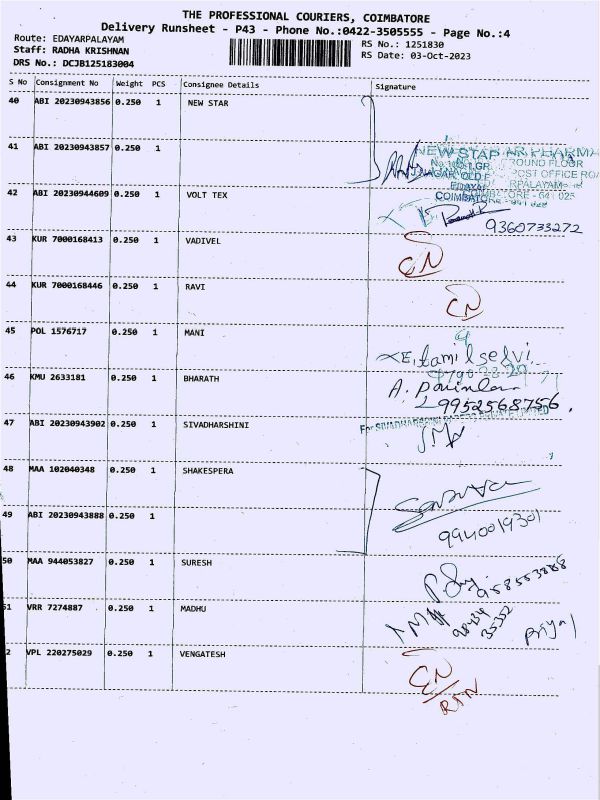 THE PROFESSIONAL COURIERS, COIMBATORE
Delivery Runsheet - P43 - Phone No.:0422-3505555 - Page No.:4
Route: EDAYARPALAYAM RS No.: 1251830
Staff: RADHA KRISHNAN RS Date: 03-Oct-2023
DRS No.: DCJB125183004
S No Consignment No Weight PCS Consignee Details Signature
40 ABI 20230943856 0.250 1 NEW STAR
41 ABI 20230943857 0.250 1
NEW STAR PHARMA
GROUND FLOOR
POST OFFICE ROA
42 ABI 20230944609 0.250 1 VOLT TEX
COIMBATORE - 641 025
9360733272
43 KUR 7000168413 0.250 1 VADIVEL
CN
44 KUR 7000168446 0.250 1 RAVI
CN
45 POL 1576717 0.250 1 MANI
E. tamil selvi
46 KMU 2633181 0.250 1 BHARATH
A.
9952568756.
47 ABI 20230943902 0.250 1 SIVADHARSHINI
For SIVADHARSHINI
48 MAA 102040348 0.250 1 SHAKESPERA
49 ABI 20230943888 0.250 1
9940019301
50 MAA 944053827 0.250 1 SURESH
51 VRR 7274887 0.250 1 MADHU
98434
35352
Priya
2 VPL 220275029 0.250 1 VENGATESH
CN
RTN